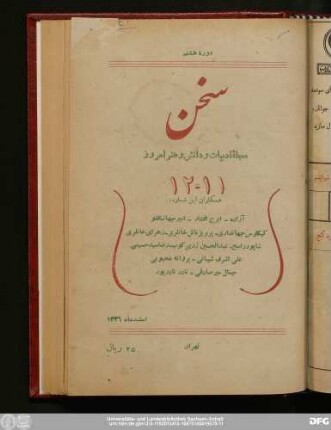 دورهٔ هشتم
سخن
مجلهٔ ادبیات و دانش و هنر امروز
۱۲-۱۱
همکاران این شماره:
آزاده - ایرج افشار - امیر جهانگلو
کیکاوس جهانداری - پرویز ناتل خانلری - زهرای خانلری
شاپور راسخ - عبدالحسین زرین کوب -
علی اشرف شیبانی - محبوبی
جمال میر صادقی - نادر نادرپور
اسفندماه ۱۳۳۶
تهران
۲۵ ریال
Universitäts- und Landesbibliothek Sachsen-Anhalt
DFG